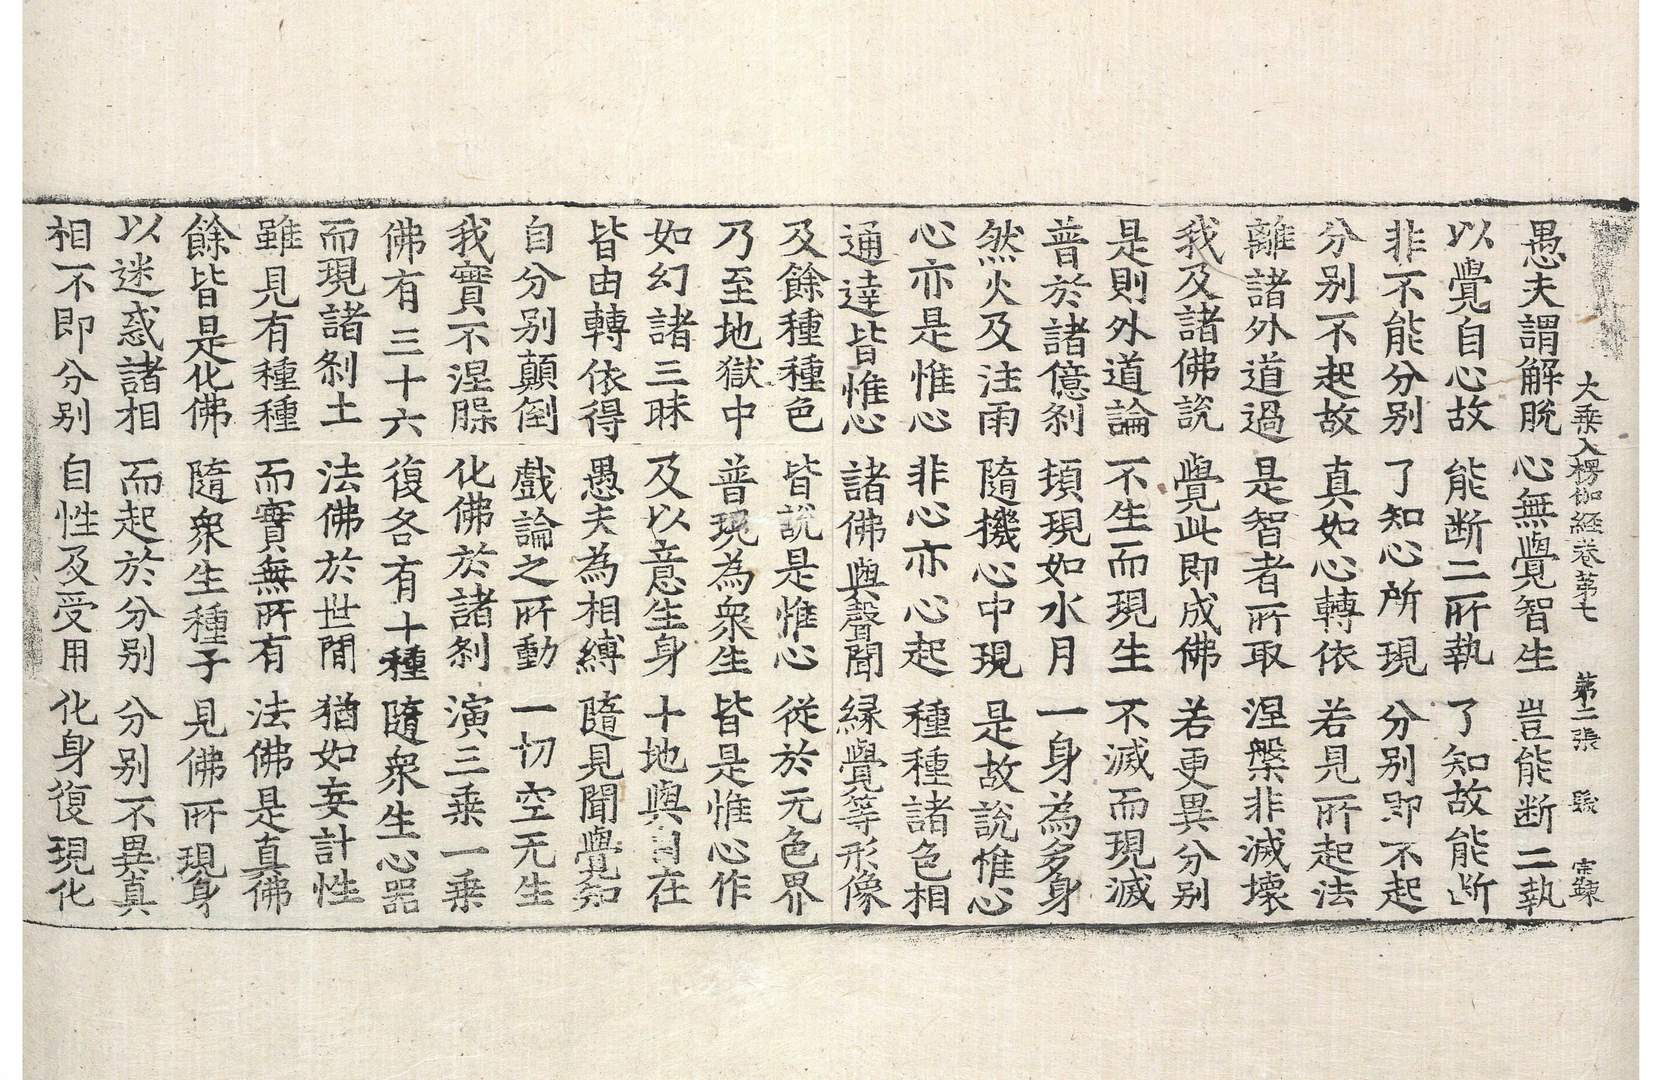 大乗入楞伽経卷第七 第二張 㱾 宗錬
愚夫謂解脫 心無覺智生 豈能断二執
以覺自心故 能断二所執 了知故能断
非不能分别 了知心所現 分别即不起
分别不起故 真如心轉依 若見所起法
離諸外道過 是智者所取 涅槃非滅壞
我及諸佛說 覺此即成佛 若更異分别
是則外道論 不生而現生 不滅而現滅
普於諸億剎 頓現如水月 一身為多身
然火及注雨 隨機心中現 是故說惟心
心亦是惟心 非心亦心起 種種諸色相
通達皆惟心 諸佛與聲聞 縁覺等形像
及餘種種色 皆說是惟心 從於无色界
乃至地獄中 普現為衆生 皆是惟心作
如幻諸三昧 及以意生身 十地與自在
皆由轉依得 愚夫為相縛 隨見聞覺知
自分别顛倒 戲論之所動 一切空无生
我實不涅槃 化佛於諸剎 演三乗一乗
佛有三十六 復各有十種 隨衆生心器
而現諸剎土 法佛於世間 猶如妄計性
雖見有種種 而實無所有 法佛是真佛
餘皆是化佛 隨衆生種子 見佛所現身
以迷惑諸相 而起於分别 分别不異真
相不即分别 自性及受用 化身復現化